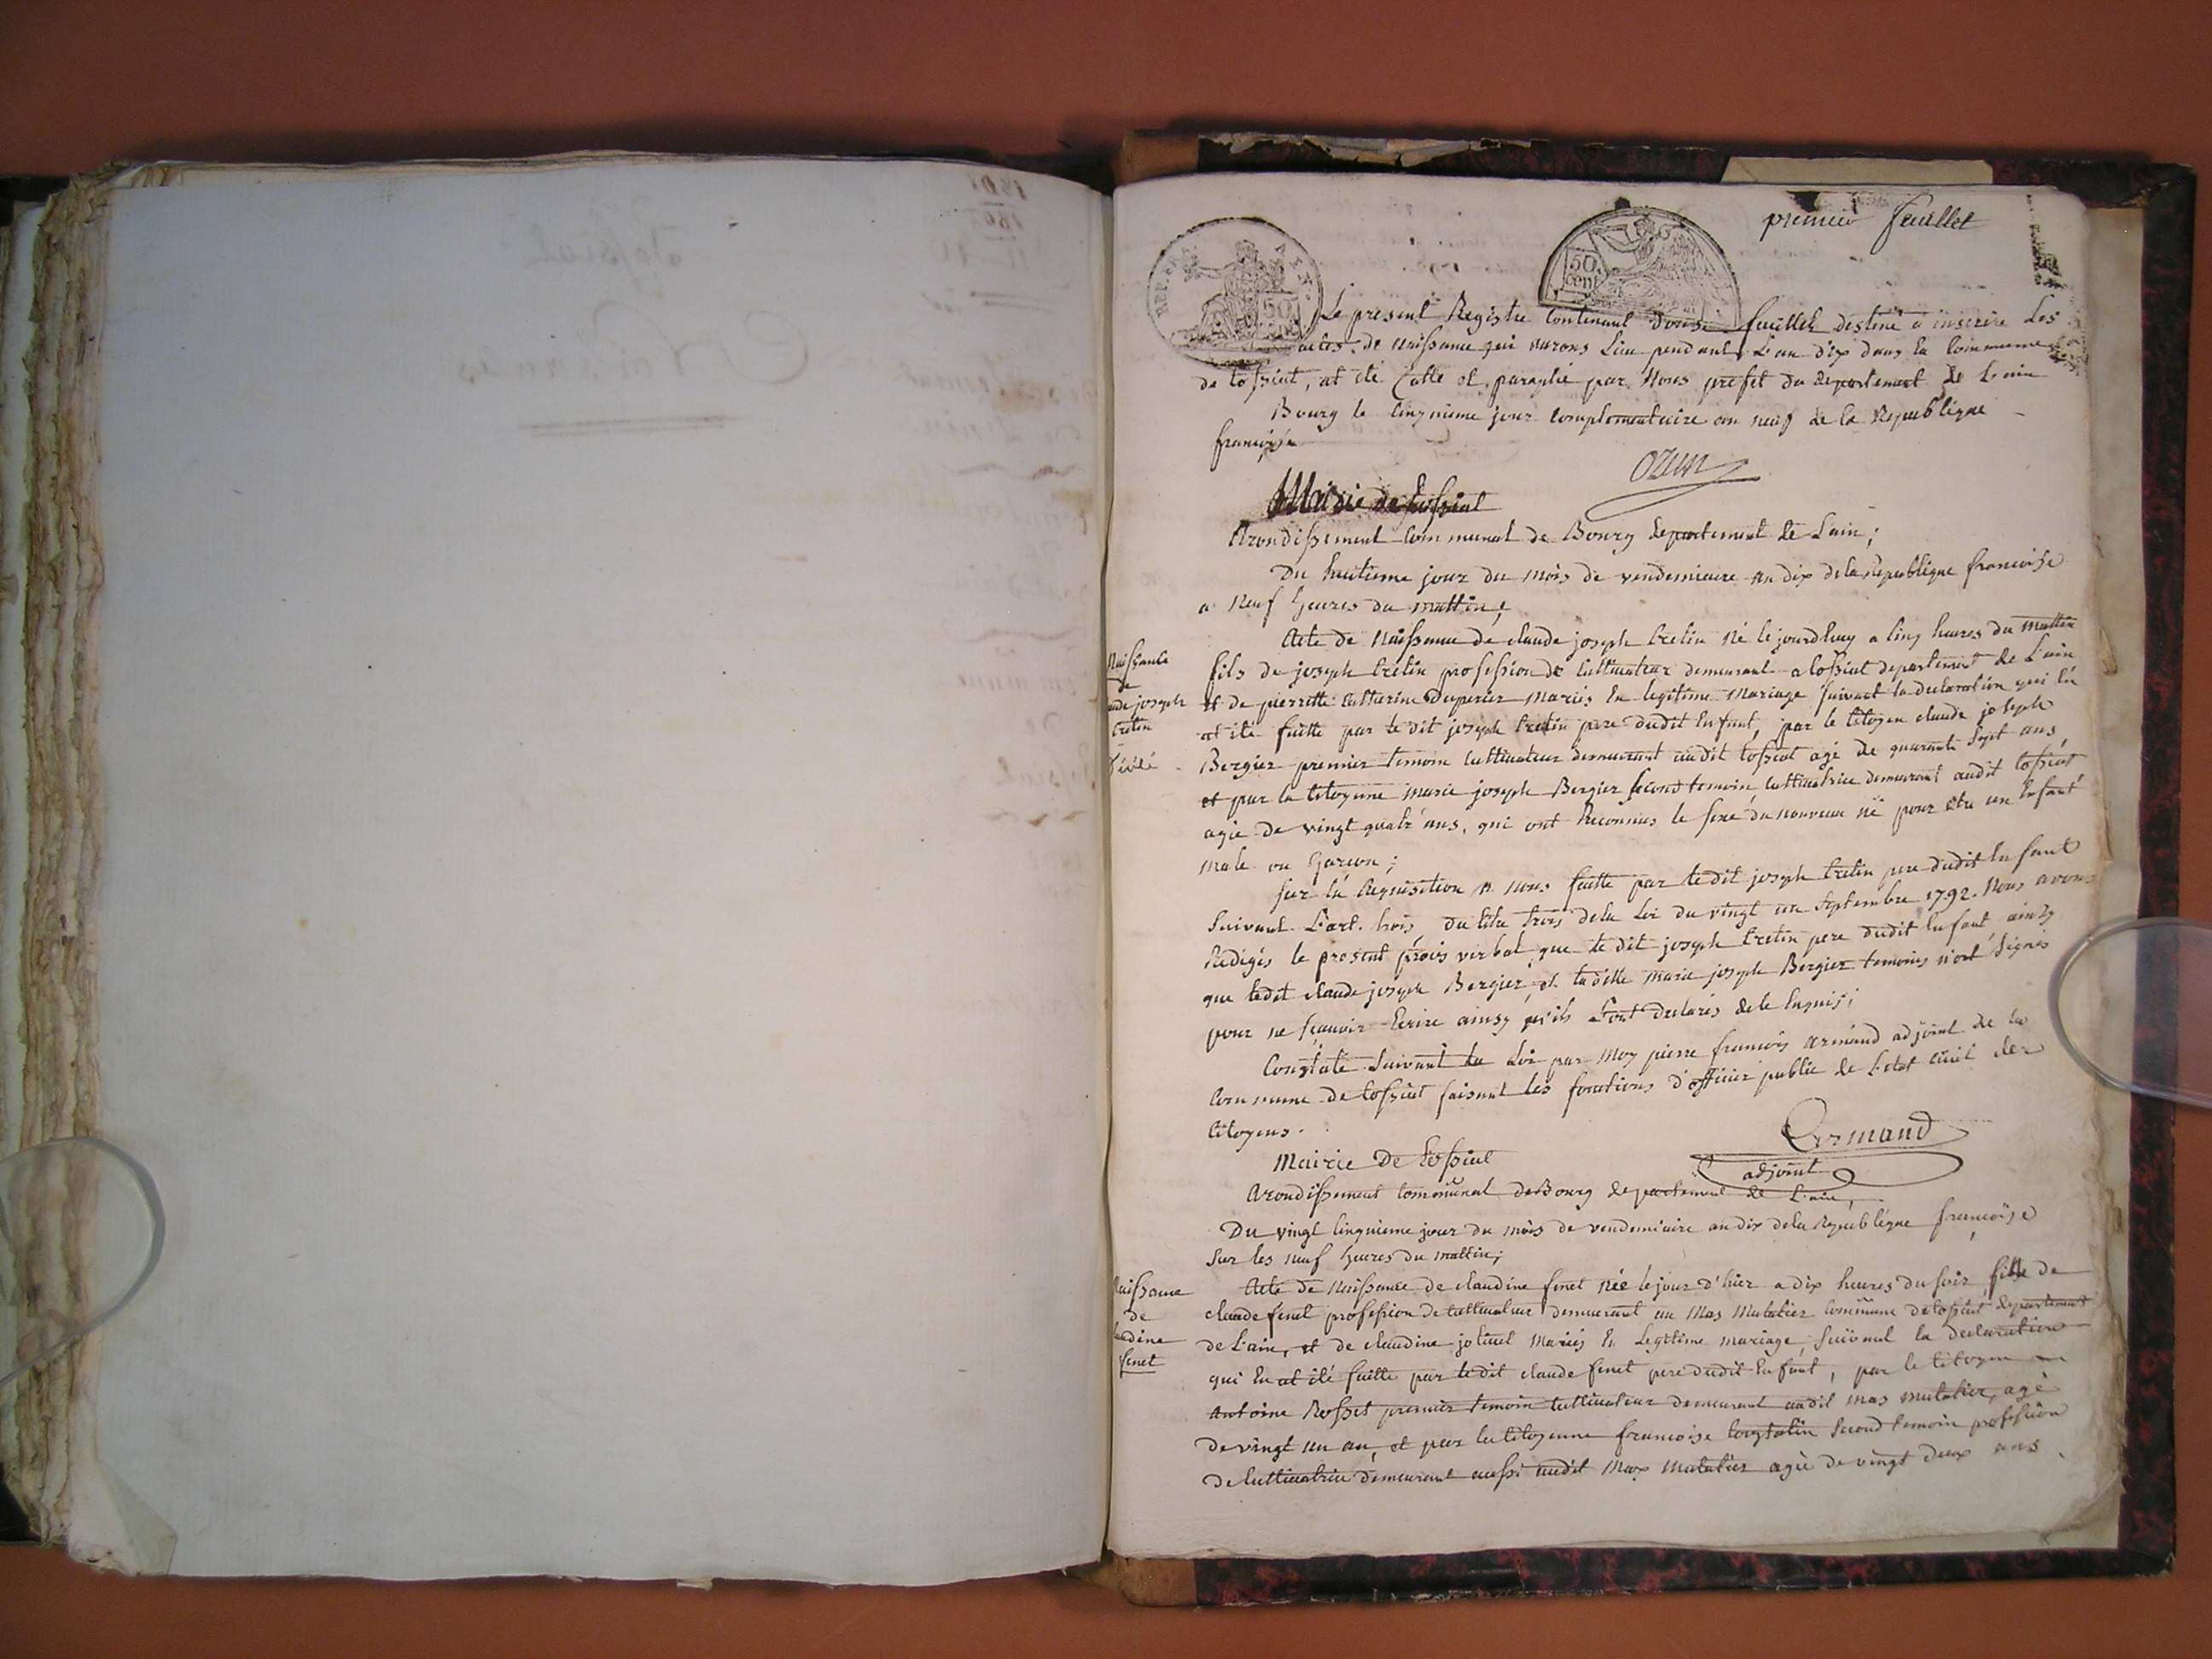 premier feuillet
REP. FRA
50
cen
Le present Registre Contenant douse feuillets destiné a inscrire Les
actes de naissance qui aurons Lieu pendant L'an dix dans la Commune
de tossiat, at été Cotté et paraphé par Nous prefet du departement de L'ain
Bourg le Cinquieme jour Complementaire an neuf de la Republique
françoise
Ozun
Mairie de tossiat
Arondissement Communal de Bourg departement de L'ain;
Du huitieme jour du mois de vendemiaire an dix de la republique francoise
a Neuf heures du mattin;
Naissance
de
aude joseph
tretin
décédé
Acte de Naissance de claude joseph tretin Né le jourdhuy a Cinq heures du mattin
fils de joseph tretin profession de Cultivateur demeurant a tossiat departement de L'ain
et de pierrette Catherine Duperier Mariés En legitime Mariage suivant la declaration qui En
at été faitte par le dit joseph tretin pere dudit Enfant, par le Citoyen claude joseph
Bergier premier temoin Cultivateur demeurant audit tossiat agé de quarante Sept ans,
et par la Citoyenne marie joseph Bergier second temoin, Cultivatrice demeurant audit tossiat
agée de vingt quatr'ans, qui ont Reconnus le sexe du nouveau né pour etre un Enfant
male ou Garcon;
Sur la Requisition a nous faitte par ledit joseph tretin pere dudit Enfant
Suivant L'art. trois, du titre trois de la Loi du vingt un Septembre 1792. Nous avons
Redigés le present procés verbal que le dit joseph tretin pere dudit Enfant, ainsy
que ledit claude joseph Bergier, et laditte marie joseph Bergier temoins n'ont Signés
pour ne sçauoir Ecrire ainsy qu'ils L'ont declarés de le Enquis;
Constaté Suivant la Loi par Moy pierre francois Armand adjoint de la
Commune de tossiat faisant les fonctions d'officier public de L'etat Civil des
Citoyens.
Armand
adjoint
Mairie de tossiat
Arondissement Communal de Bourg departement de L'ain,
Du vingt Cinquieme jour du mois de vendemiaire an dix de la Republique françoise
Sur les neuf heures du mattin;
Naissance
de
laudine
fenet
Acte de Naissance de claudine fenet née le jour d'hier a dix heures du soir, fille de
claude fenet profession de Cultivateur demeurant au Mas Mutatier Commune de tossiat departement
de L'ain, et de claudine joliuet Mariés En Legitime mariage, Suivant la declaration
qui En at été faitte par le dit claude fenet pere dudit Enfant, par le Citoyen
Antoine Rosset premier temoin Cultivateur demeurant audit mas mutatier, agé
de vingt un an, et par la Citoyenne francoise Second temoin profession
de Cultivatrice demeurant aussi audit Max Mutatier agée de vingt deux ans